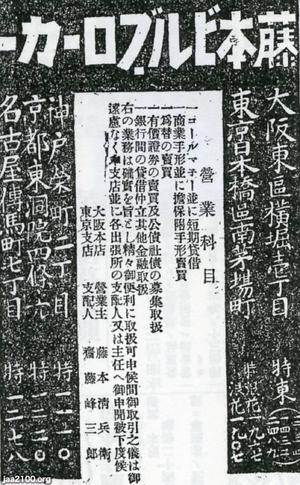 藤本ビルブローカー
大阪東區横堀壹丁目
特東
東京日本橋區南茅場町
特浪花
營業科目
一コールマネー並に短期貸借
一商業手形並に擔保附手形賣買
一爲替の賣買
一有價證券の賣買及公債社債の募集取扱
一銀行間の貸借仲立其他金融取扱
右の業務は確實を旨とし精々御便利に取扱可申候間御取引之儀は御
遠慮なく本支店並に各出張所の支配人又は主任へ御申聞被下度候
大阪本店 營業主 藤本清兵衛
東京支店 支配人 齋藤峰三郎
神戸榮町二丁目 特
京都東洞院 特
名古屋傳馬町七丁目 特一二七八
jaa2100.org